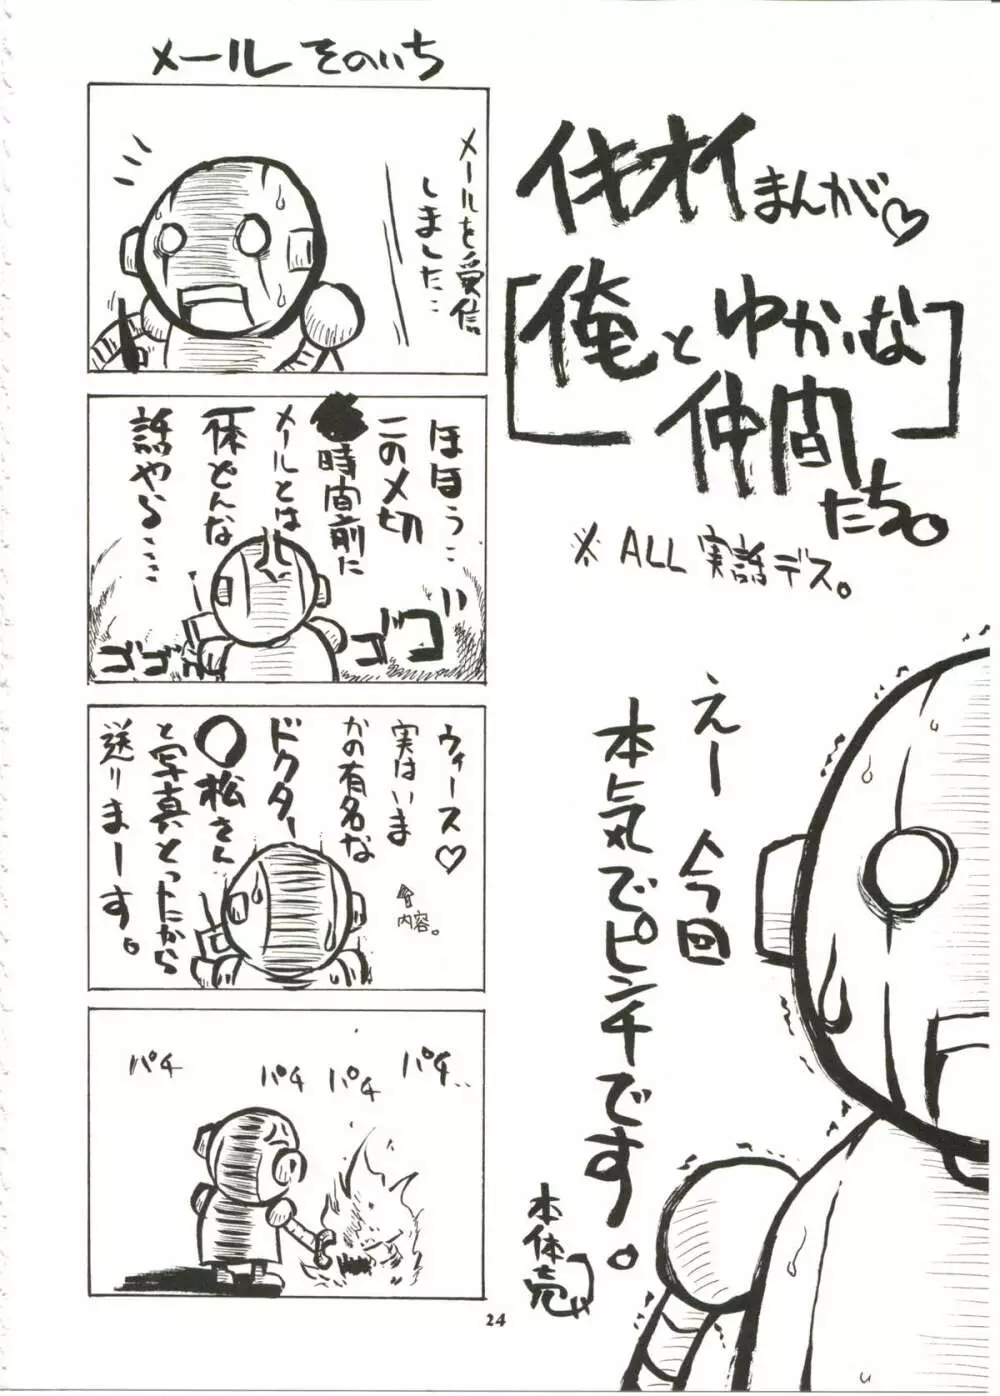 イキオイまんが♡
「俺とゆかいな
仲間
たち。」
※ALL実話デス。
えー今回
本気でピンチです。
メールそのいち
メールを受信
しました…
ほほう…
この〆切
時間前に
メールとは
一体どんな
話やら……
ゴゴゴゴ
ウィース♡
実はいま
かの有名な
ドクター
〇松さん
と写真とったから
送りまーす。
内容。
パチ
パチ
パチ
パチ…
24